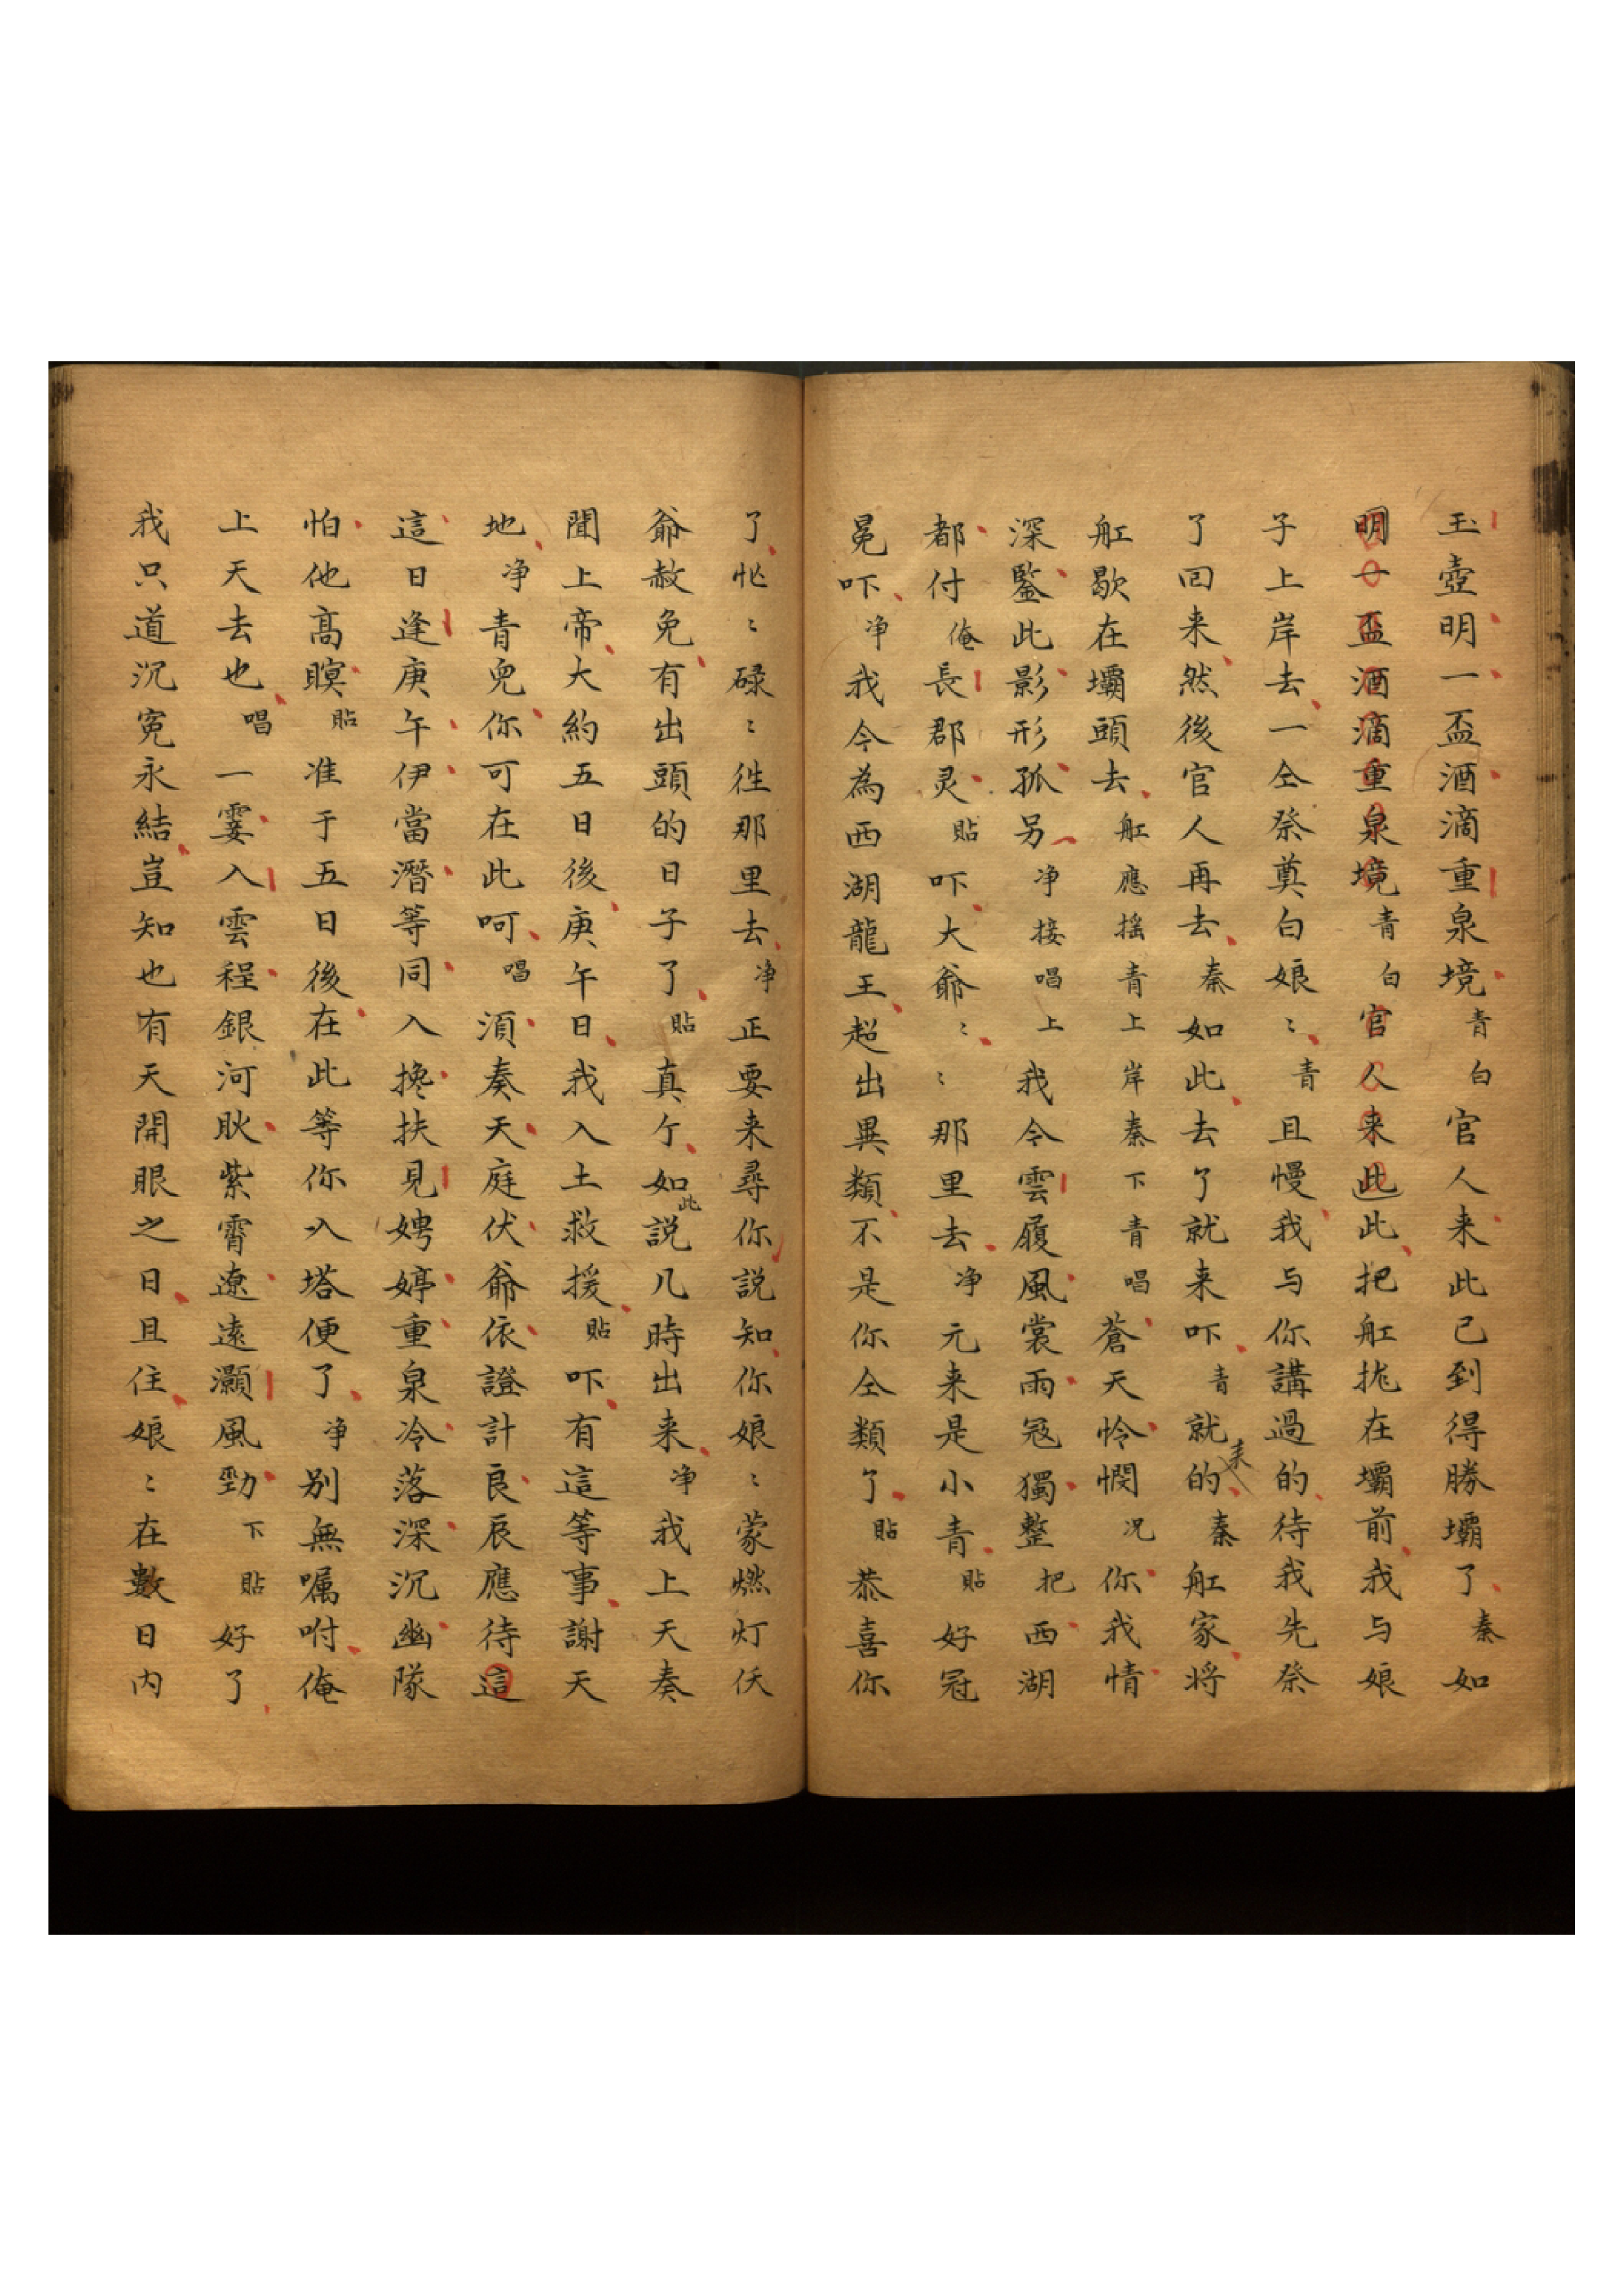 玉壺明一盃酒滴重泉境青白官人来此已到得勝壩了秦如
明一盃酒滴重泉境青白官人来此此把舡拢在壩前我与娘
子上岸去一仝祭奠白娘〻青且慢我与你講過的待我先祭
了回来然後官人再去秦如此去了就来吓青就来的秦舡家将
舡歇在壩頭去舡應摇青上岸秦下青唱蒼天怜憫况你我情
深鑒此影形孤另净接唱上我令雲履風裳雨冠獨整把西湖
都付俺長郡灵貼吓大爺〻〻那里去净元来是小青貼好冠
冕吓净我今為西湖龍王超出異類不是你仝類了貼恭喜你
了忙〻碌〻徃那里去净正要来尋你説知你娘〻蒙燃灯佛
爺赦免有出頭的日子了貼真个如此説几時出来净我上天奏
聞上帝大約五日後庚午日我入土救援貼吓有這等事謝天
地净青兒你可在此呵唱湏奏天庭伏爺依證計良辰應待這
這日逢庚午伊當潛等同入搀扶見娉婷重泉冷落深沉幽隊
怕他高瞑貼准于五日後在此等你入塔便了净别無嘱咐俺
上天去也唱一霎入雲程銀河耿紫霄遼遠灝風勁下貼好了
我只道沉冤永結豈知也有天開眼之日且住娘〻在數日内